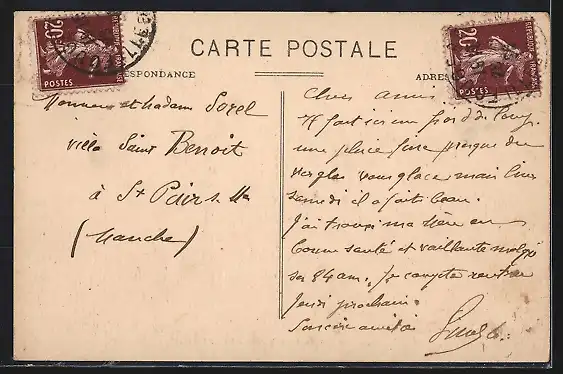 CARTE POSTALE
CORRESPONDANCE
ADRES
20c
POSTES
20c
POSTES
Monsieur et Madame Sorel
villa Saint Benoit
à St Pair s. Mer
(Manche)
Chers amis
Il fait ici un froid de loup.
une pluie fine presque du
verglas vous glace mais hier
samedi il a fait beau.
J'ai trouvé ma mère en
bonne santé et vaillante malgré
ses 84 ans. Je compte rentrer
Jeudi prochain.
Sincère amitié